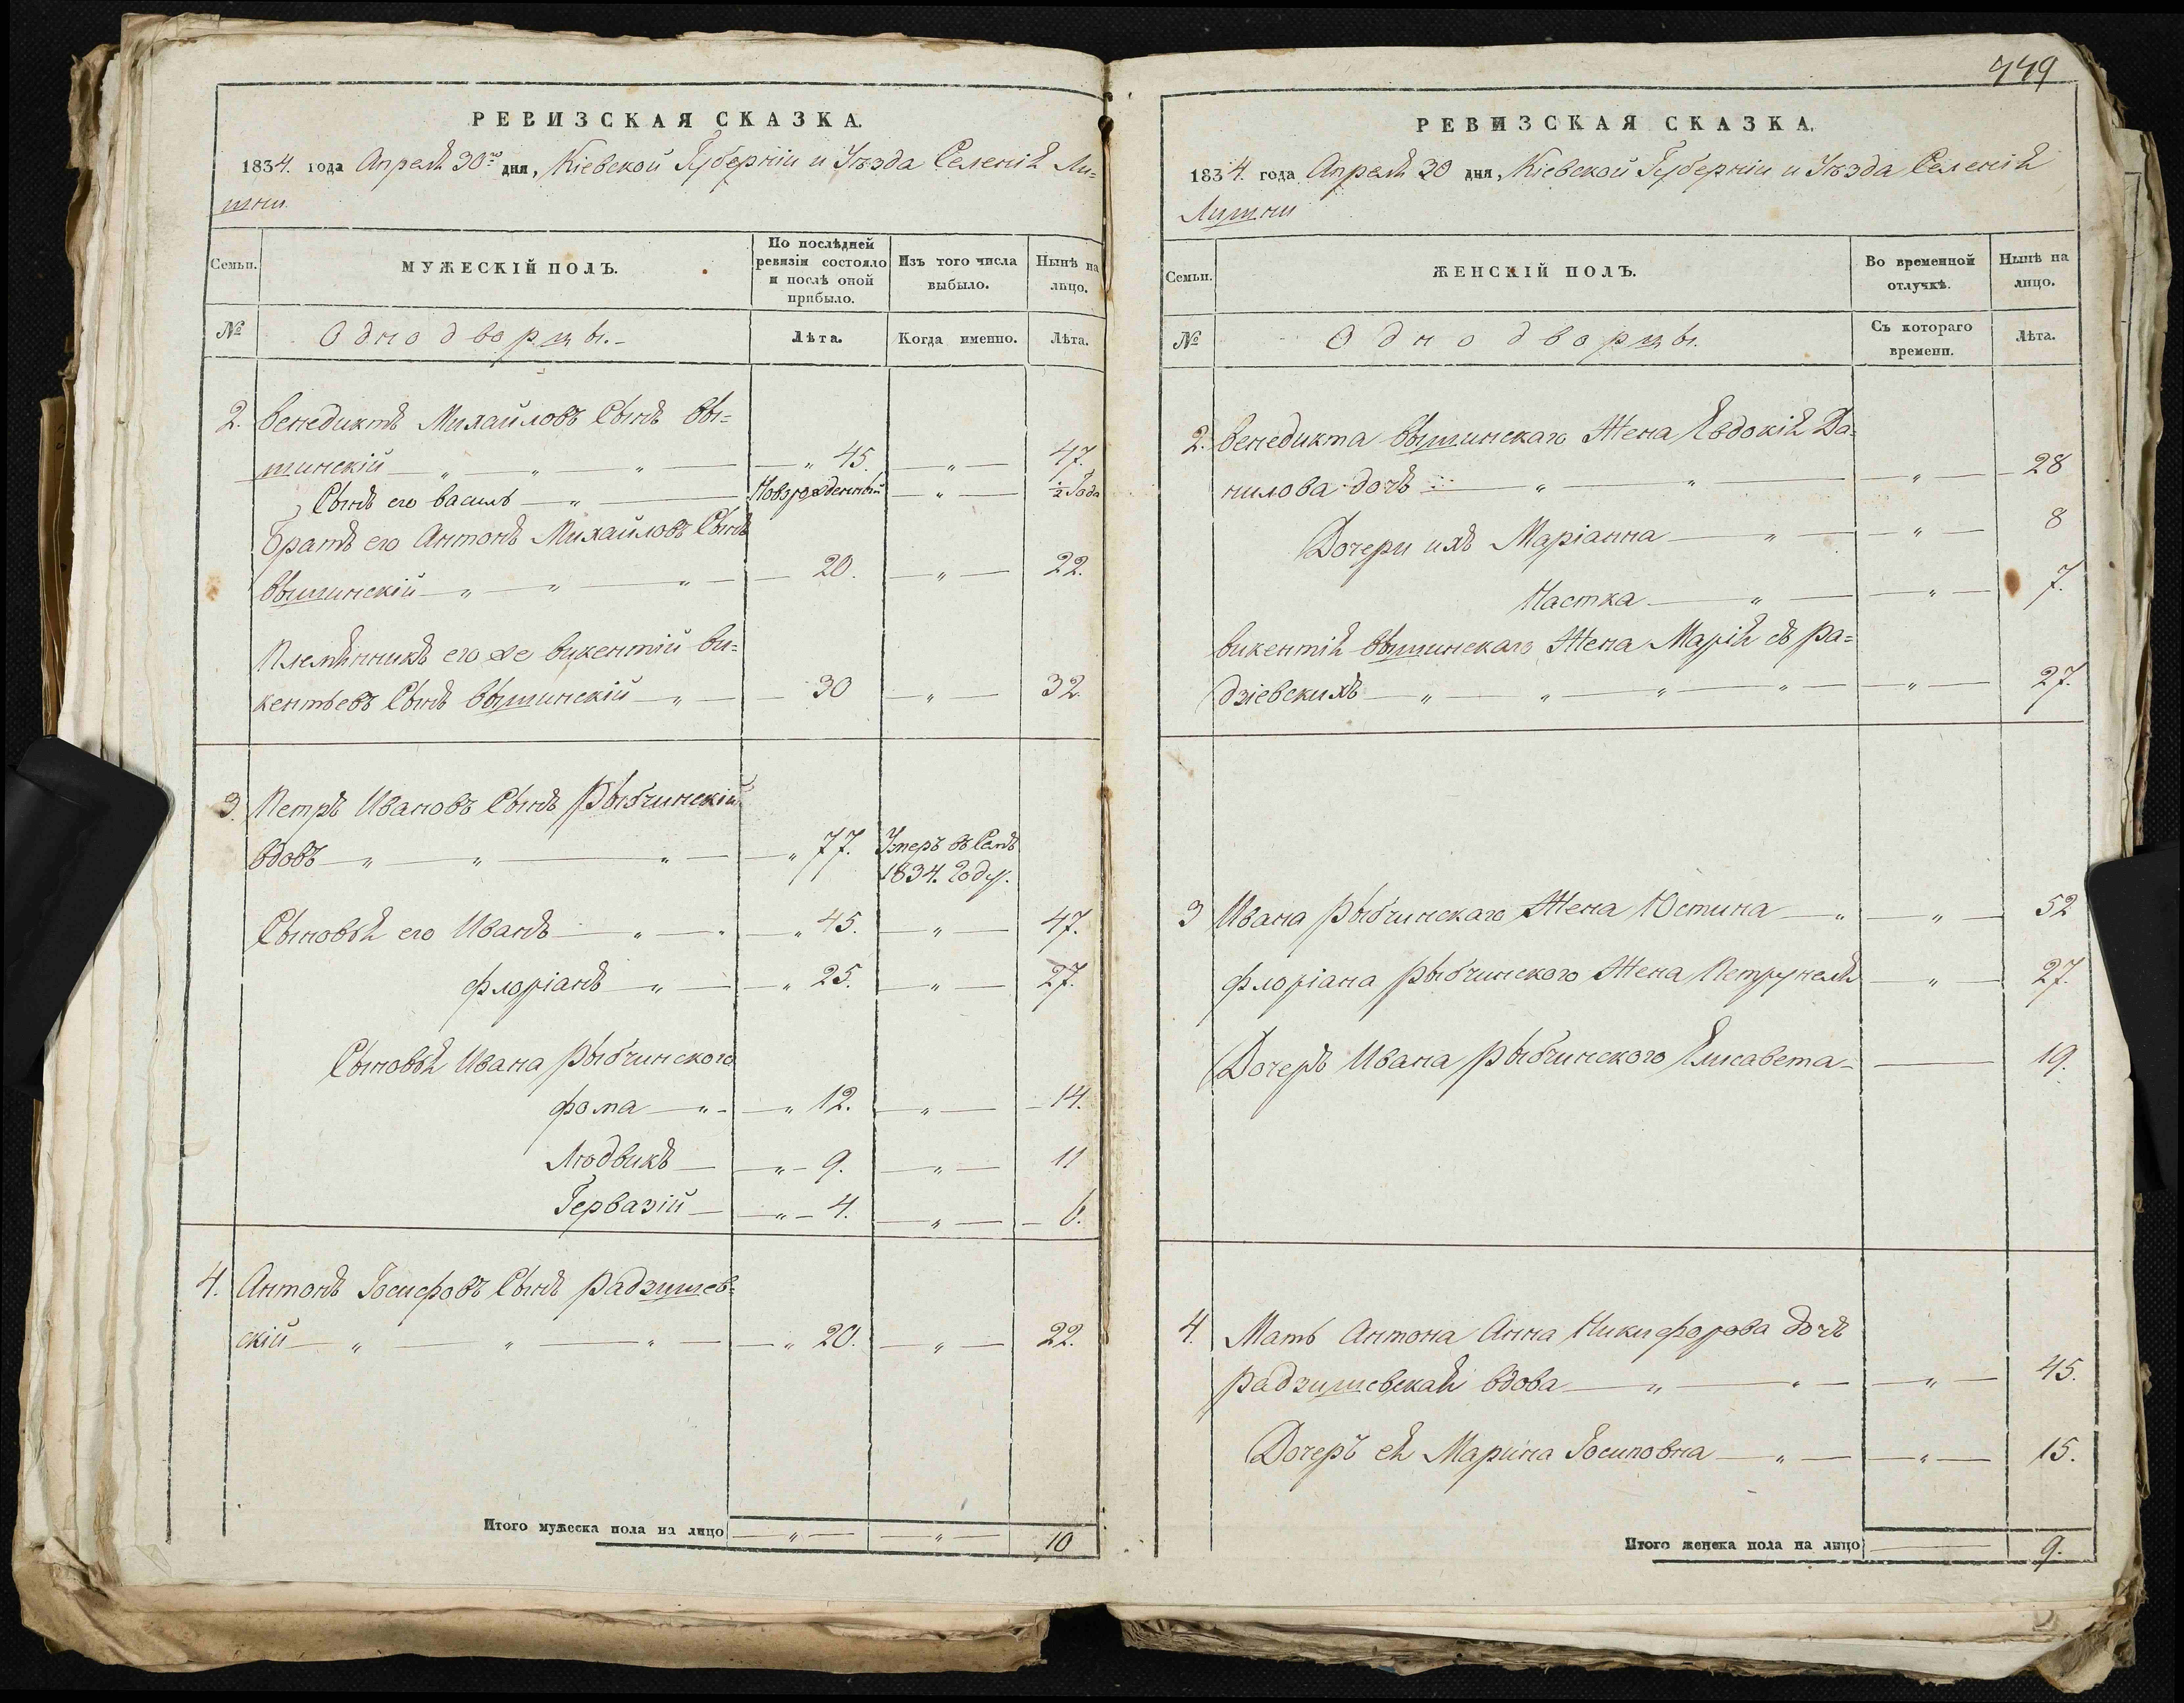 РЕВИЗСКАЯ СКАЗКА.
1834. года Апреля 30го дня, Кіевской Губерніи и Уѣзда Селенія Ли=
шни
Семьи. МУЖЕСКІЙ ПОЛЪ. По послѣдней ревизіи состояло и послѣ оной прибыло. Изъ того числа выбыло. Нынѣ на лицо.
№ Однодворцы.- Лѣта. Когда именно. Лѣта.
2. Венедиктъ Михайловъ Сынъ Вы=
шинскій — „ — „ — „ — „ 45. — „ — 47.
Сынъ его Василь — „ — Новорожденный — „ — ½ Года
Братъ его Антонъ Михайловъ Сынъ
Вышинскій — „ — „ — „ — 20. — „ — 22.
Племѣнникъ его же Викентій Ви=
кентьевъ Сынъ Вышинскій — „ — 30 — „ — 32.
3. Петръ Ивановъ Сынъ Рыбчинскій
вдовъ — „ — „ — „ — „ 77. Умеръ въ Семъ
1834. Году.
Сыновья его Иванъ — „ — „ 45. — „ — 47.
Флоріанъ — „ — „ 25. — „ — 27.
Сыновья Ивана Рыбчинского
Фома — „ — „ 12. — „ — 14.
Людвикъ — „ — 9. — „ — 11
Гервазій — „ — 4. — „ — 6.
4. Антонъ Іосифовъ Сынъ Радзишев=
скій — „ — „ — „ — „ 20. — „ — 22.
Итого мужеска пола на лицо — „ — — „ — 10
449
РЕВИЗСКАЯ СКАЗКА.
1834. года Апреля 30 дня, Кіевской Губерніи и Уѣзда Селенія
Лишни
Семьи. ЖЕНСКІЙ ПОЛЪ. Во временной отлучкѣ. Нынѣ на лицо.
№ Однодворцы. Съ котораго времени. Лѣта.
2. Венедикта Вышинскаго Жена Евдокія Да=
нилова дочь — „ — „ — „ — 28
Дочери ихъ Маріанна — „ — „ — 8
Настка — „ — „ — 7.
Викентія Вышинскаго Жена Марія съ Ра=
дзіевскихъ — „ — „ — „ — „ — „ — 27.
3 Ивана Рыбчинскаго Жена Юстина — „ — „ — 52
Флоріана Рыбчинского Жена Петрунеля — „ — 27.
Дочеръ Ивана Рыбчинского Елисавета — 19.
4. Мать Антона Анна Никифорова дочь
Радзишевская вдова — „ — „ — „ — 45.
Дочеръ ея Марина Іосиповна — „ — „ — 15.
Итого женска пола на лицо — 9.